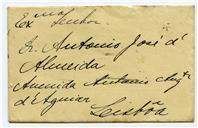 Exmo Senhor
Dr. Antonio José d'
Almeida
Avenida Antonio Augto
d'Aguiar
Lisbôa